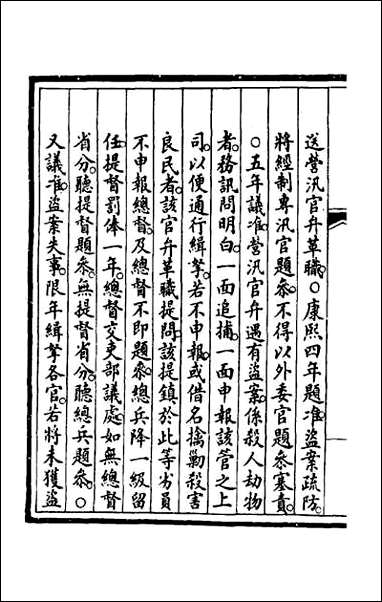 送營汛官弁革職○康熙四年題准盜案疏防
將經制專汛官題叅不得以外委官題叅塞責
○五年議准營汛官弁遇有盜案係殺人劫物
者務訊問明白一面追捕一面申報該管之上
司以便通行緝拏若不申報或借名擒勦殺害
良民者該官弁革職提問該提鎮於此等劣員
不申報總督及總督不即題叅總兵降一級留
任提督罰俸一年總督交吏部議處如無總督
省分聽提督題叅無提督省分聽總兵題叅○
又議准盜案失事限年緝拏各官若將未獲盜